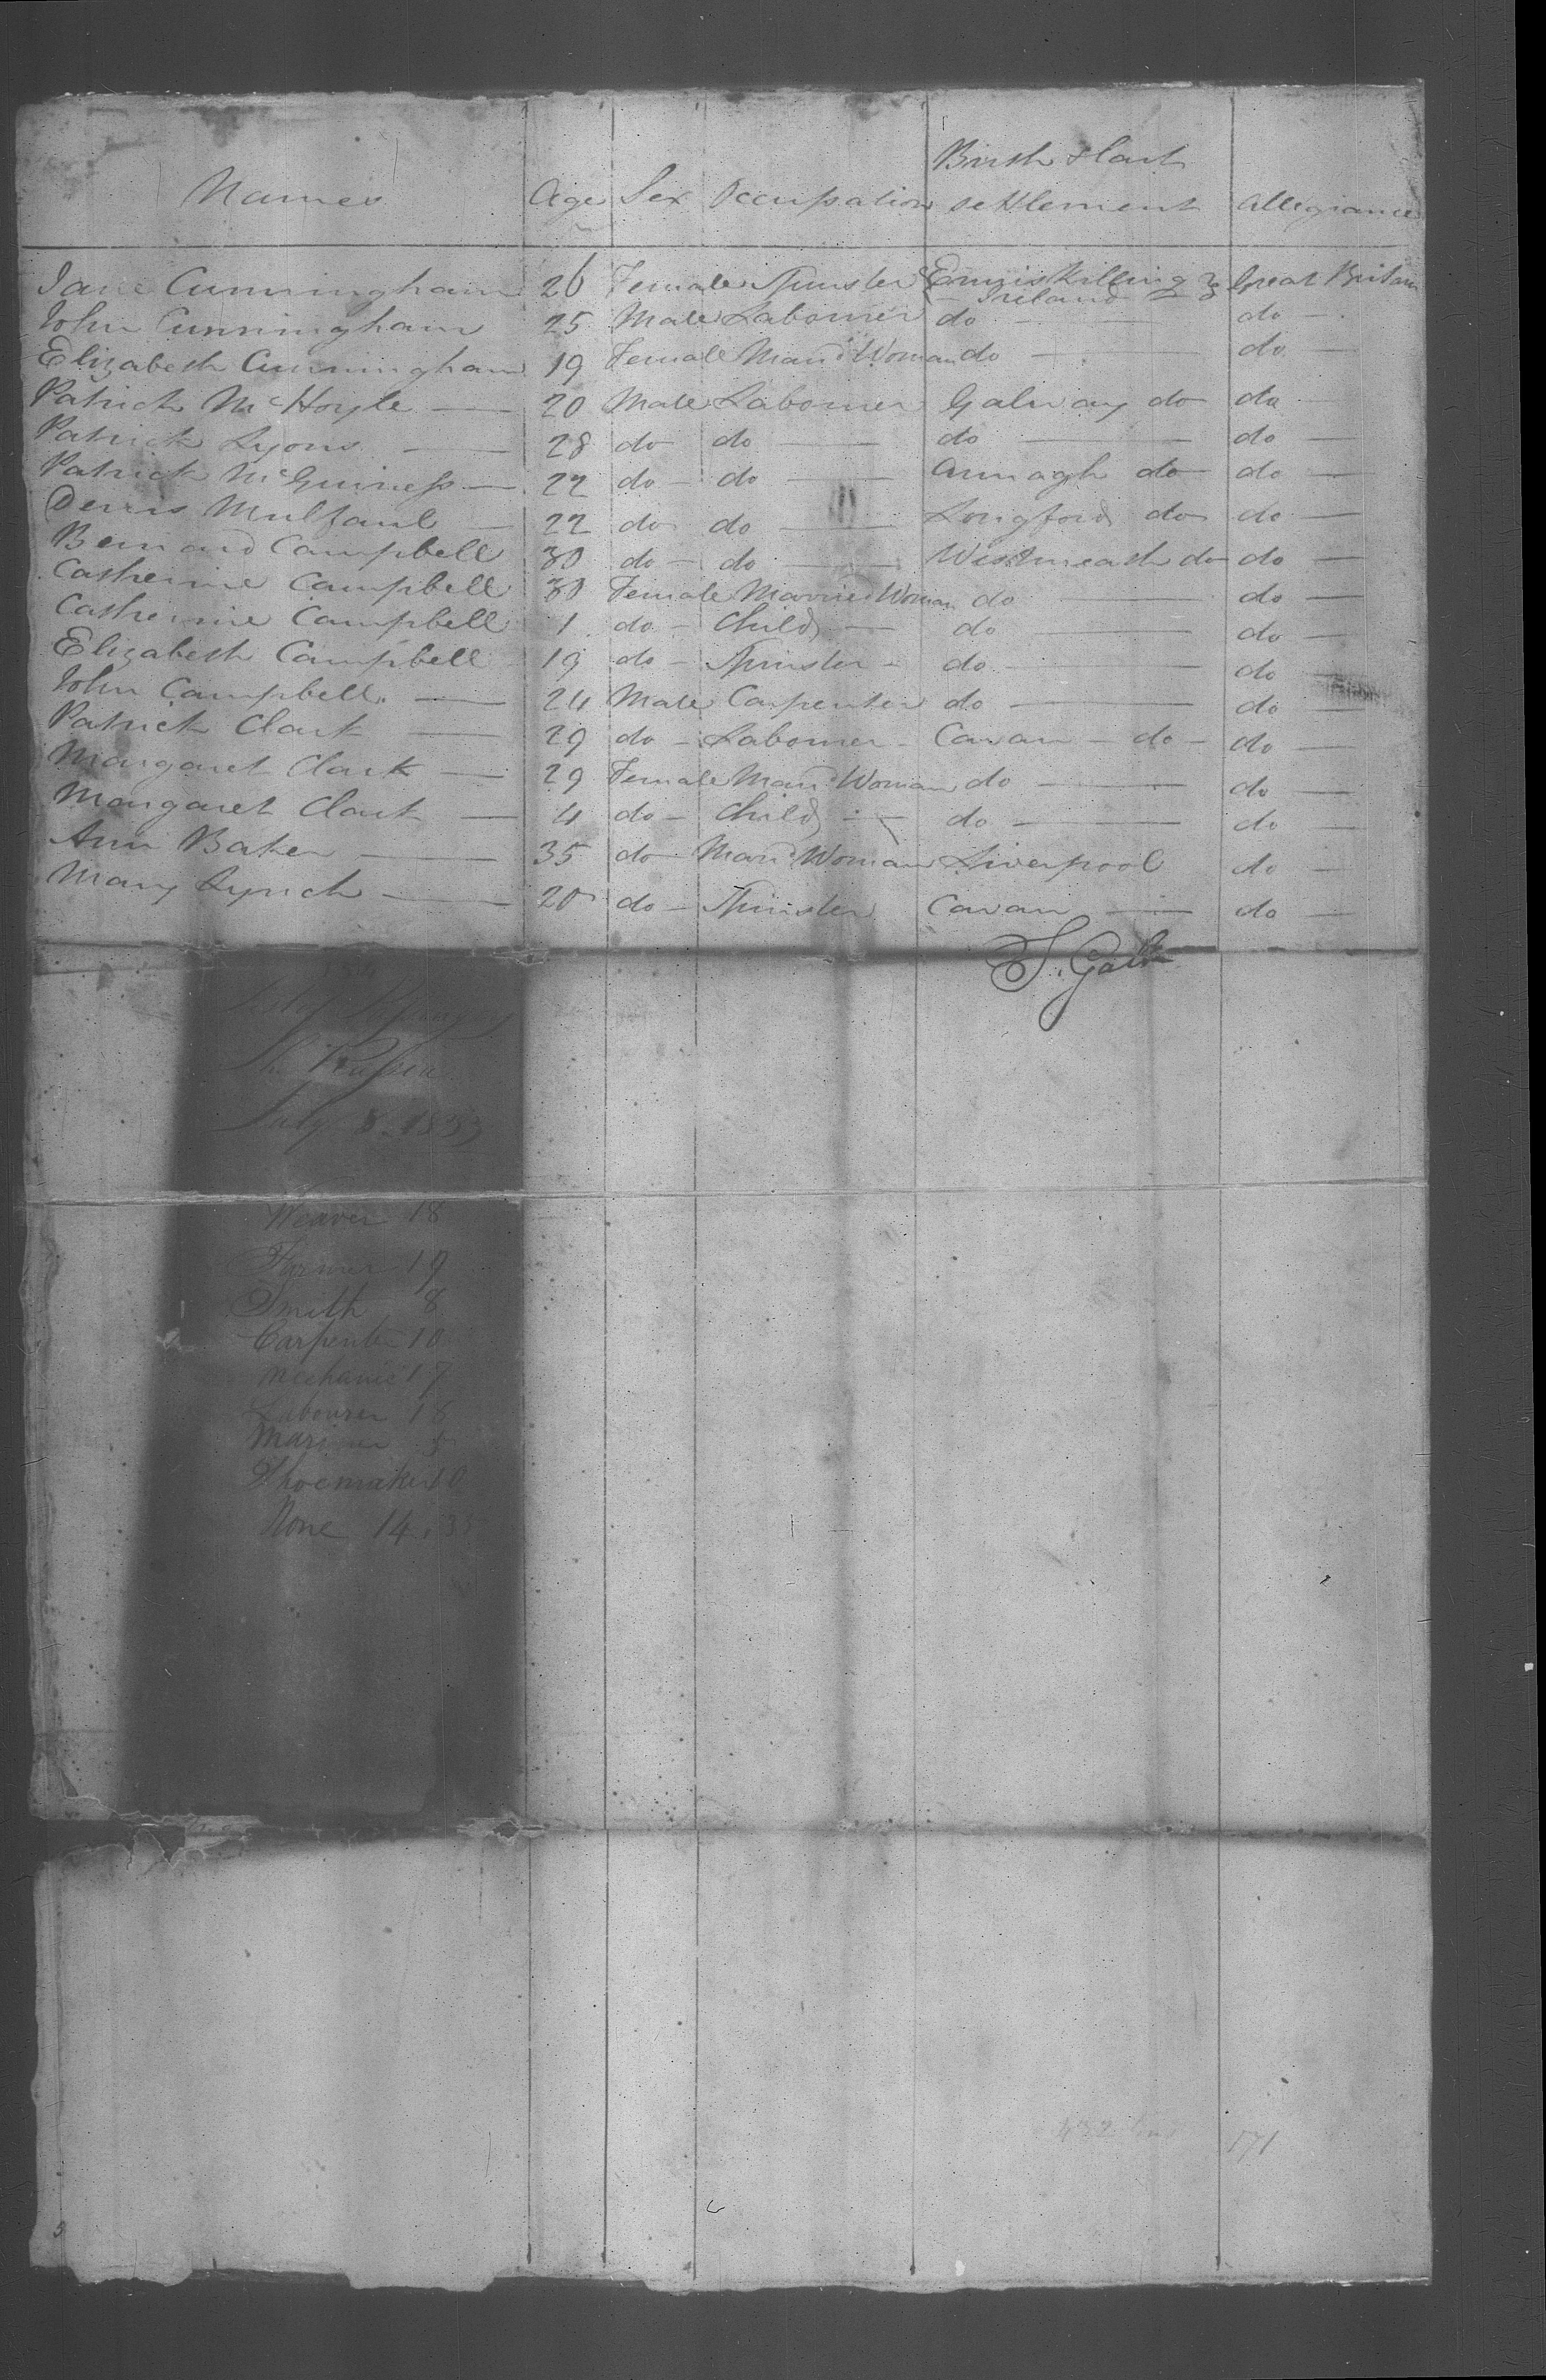 Names Age Sex Occupation Birth & last settlement Allegiance
Jane Cunningham 26 Female Spinster Enniskilling Ireland Great Britain
John Cunningham 25 Male Labourer do do
Elizabeth Cunningham 19 Female Mard Woman do do
Patrick McHoyle 20 Male Labourer Galway do do
Patrick Lyons 28 do do do do
Patrick McGuiness 22 do do Armagh do do
Dennis Mulfaul 22 do do Longford do do
Bernard Campbell 30 do do Westmeath do do
Catherine Campbell 30 Female Married Woman do do
Catherine Campbell 1 do Child do do
Elizabeth Campbell 19 do Spinster do do
John Campbell 24 Male Carpenter do do
Patrick Clark 29 do Labourer Cavan do do
Margaret Clark 29 Female Mard Woman do do
Margaret Clark 4 do Child do do
Ann Baker 35 do Mard Woman Liverpool do
Mary Lynch 20 do Spinster Cavan do
List of Passengers
July 8. 1833
Weaver 18
Farmer 19
Smith 8
Carpenter 10
Mechanic 17
Labourer 18
Mariner 5
Shoemaker 10
None 14.
171